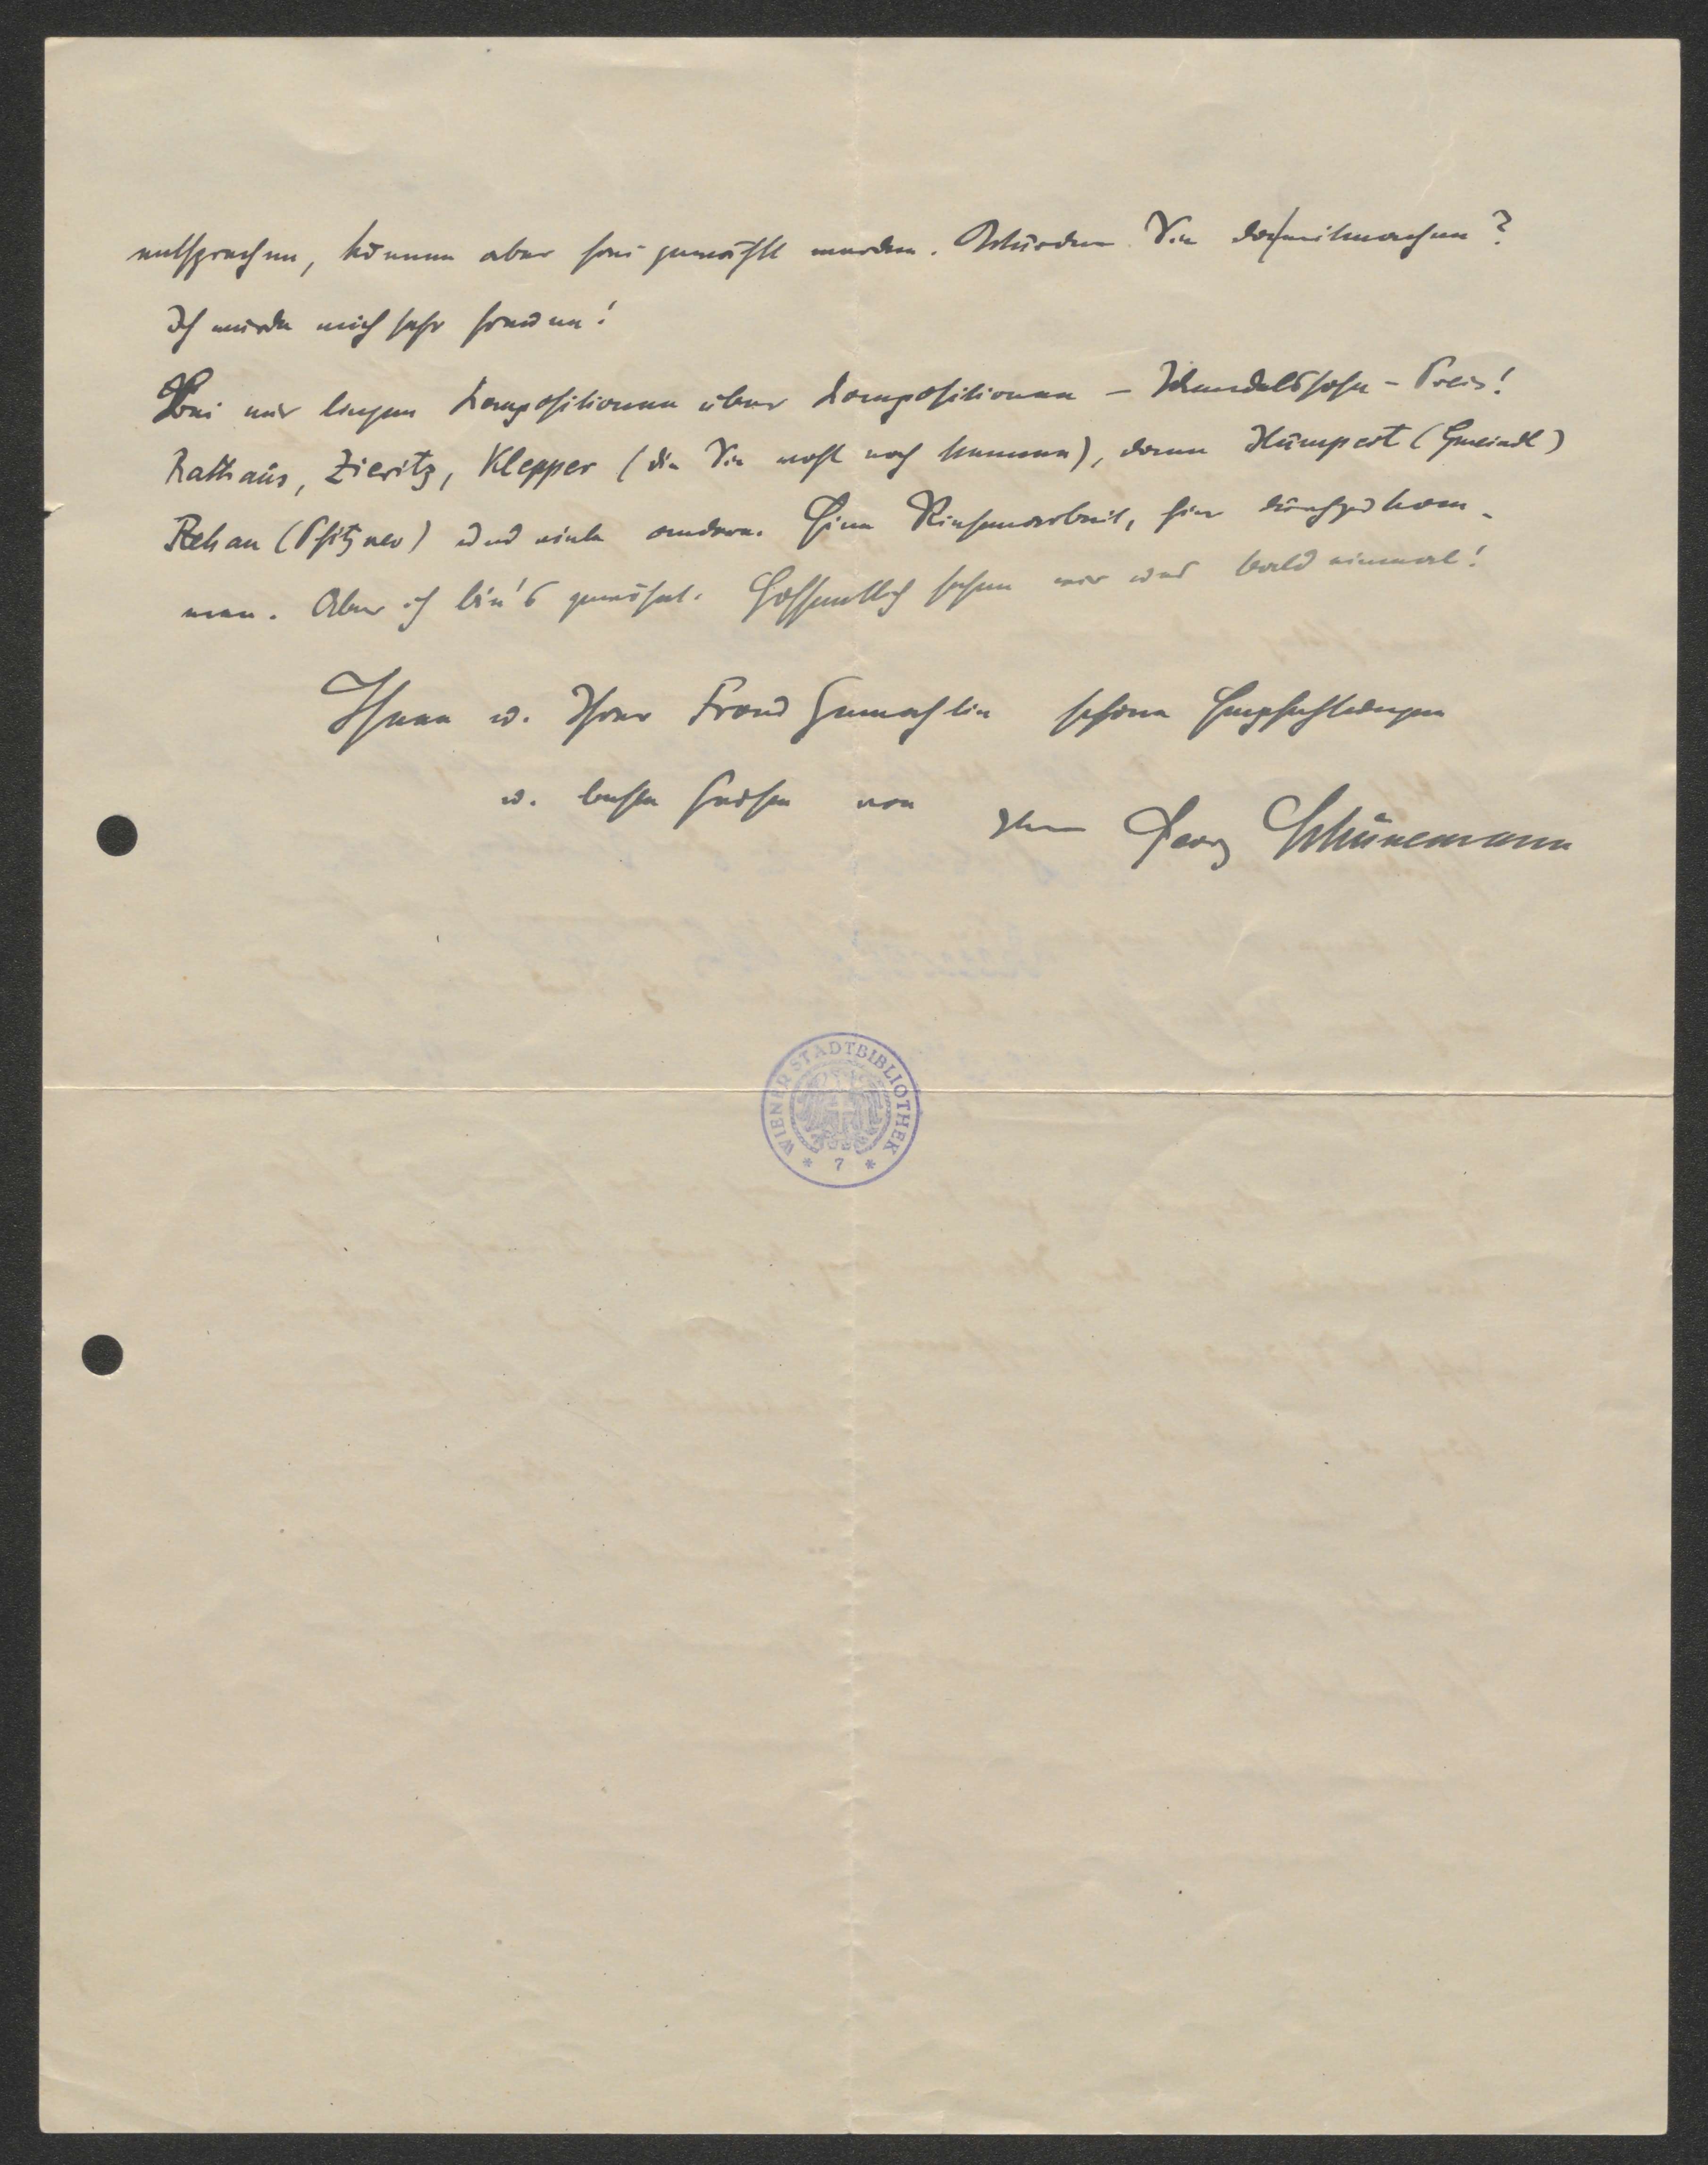 entsprechen, können aber frei gewählt werden. Würden Sie da mitmachen?
Ich würde mich sehr freuen!
Bei mir liegen Kompositionen über Kompositionen – Mendelssohn-Preis!
Rathaus, Zieritz, Klepper (die Sie wohl noch kennen), dann Humpert (Gmeindl)
Rehan (Pfitzner) und viele andere. Eine Riesenarbeit, hier durchzukom-
men. Aber ich bin's gewöhnt. Hoffentlich sehen wir uns bald einmal!
Ihnen u. Ihrer Frau Gemahlin schöne Empfehlungen
u. besten Grüßen von Ihrem Georg Schünemann
WIENER STADTBIBLIOTHEK
* 7 *